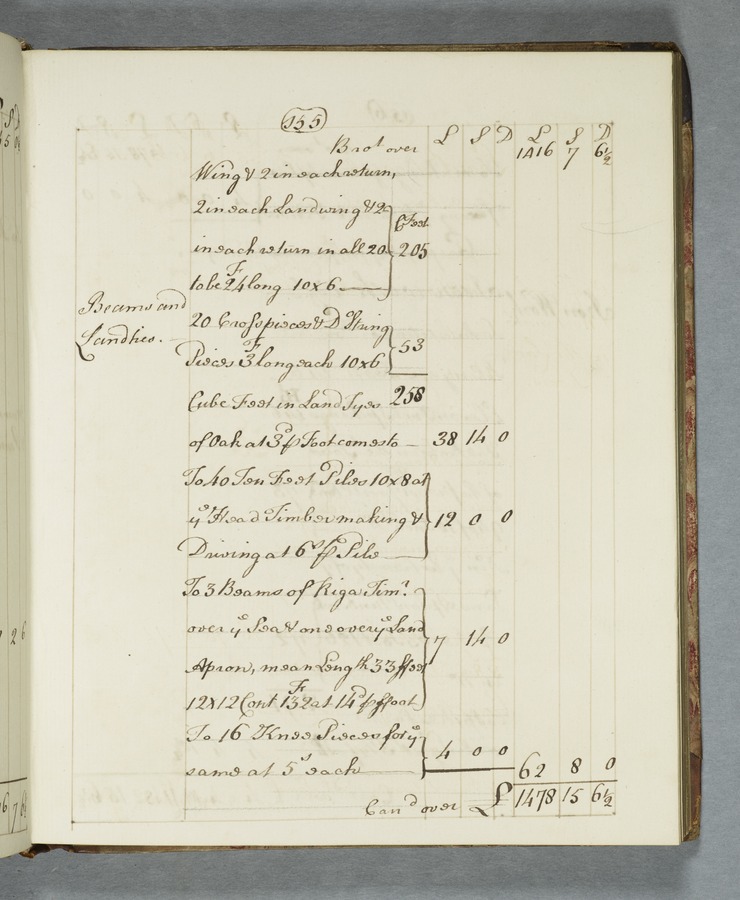 155
£ S D £ S D
Bro.t over 1416 7 6½
Wing & 2 in each return,
2 in each Landwing & 2
C Feet
in each return in all 20 205
to be 24 F long 10x6
Beams and
20 Crosspieces & D.o String
Landties.
53
Pieces 3 F long each 10x6
258
Cube Feet in Land Tyes
of Oak at 3 d p Foot comes to 38 14 0
To 40 Ten Feet Piles 10x8 at
y.e Head Timber making & 12 0 0
Driving at 6 s p Pile
To 3 Beams of Riga Tim.r
over y.e Sea & one over y.e Land
7 14 0
Apron, mean Length 33 ffeet
12x12 Cont 132 F at 14 d p ffoot
To 16 Knee Pieces for y.e
4 0 0
same at 5 s each 62 8 0
Carr.d over £ 1478 15 6½
2 6
6 7 6½